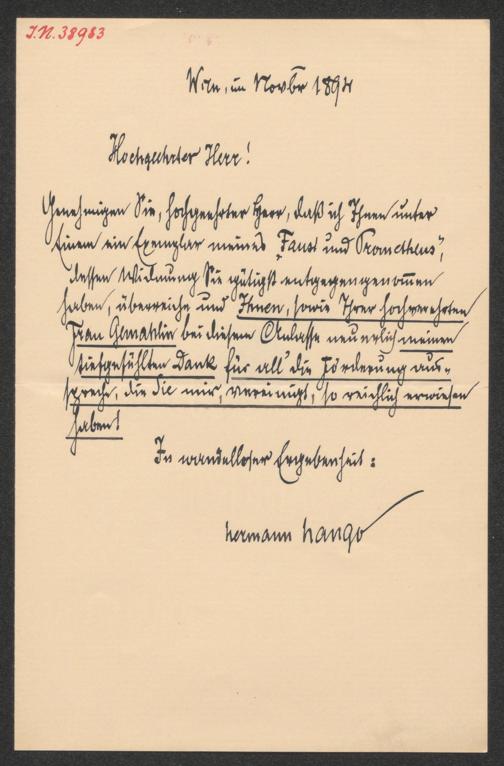 I.N. 38983
Wien, im Novbr 1894
Hochgeehrter Herr!
Genehmigen Sie, hochgeehrter Herr, daß ich Ihnen unter
Einem ein Exemplar meines „Faust und Prometheus",
dessen Widmung Sie gütigst entgegengenommen
haben, überreiche und Ihnen, sowie Ihrer hochverehrten
Frau Gemahlin bei diesem Anlasse neuerlich meinen
tiefgefühlten Dank für all' die Förderung aus-
spreche, die Sie mir, vereinigt, so reichlich erwiesen
haben!
In wandelloser Ergebenheit:
Hermann Hango